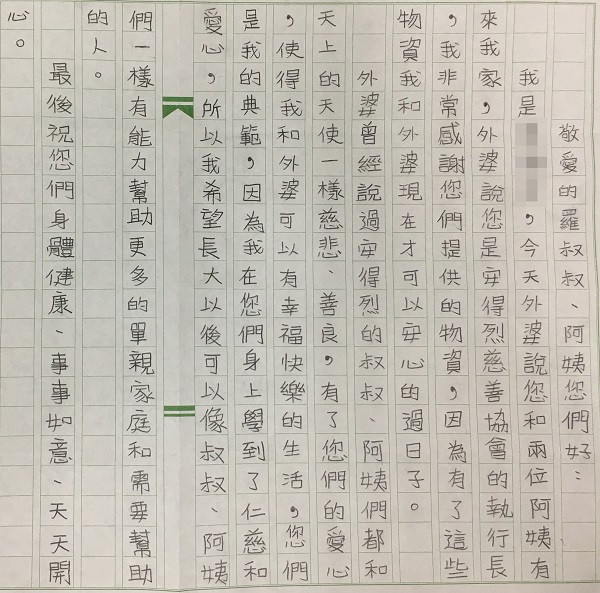 敬愛的羅叔叔、阿姨您們好：
我是，今天外婆說您和兩位阿姨有
來我家，外婆說您是安得烈慈善協會的執行長
，我非常感謝您們提供的物資，因為有了這些
物資我和外婆現在才可以安心的過日子。
外婆曾經說過安得烈的叔叔、阿姨們都和
天上的天使一樣慈悲、善良，有了您們的愛心
，使得我和外婆可以有幸福快樂的生活，您們
是我的典範，因為我在您們身上學到了仁慈和
愛心，所以我希望長大以後可以像叔叔、阿姨
們一樣有能力幫助更多的單親家庭和需要幫助
的人。
最後祝您們身體健康、事事如意、天天開
心。